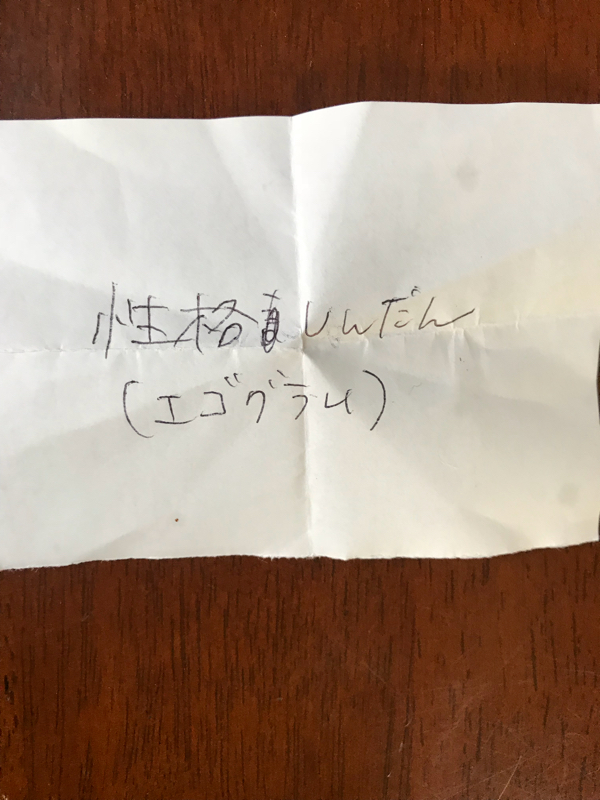 性格しんだん
(エゴグラム)